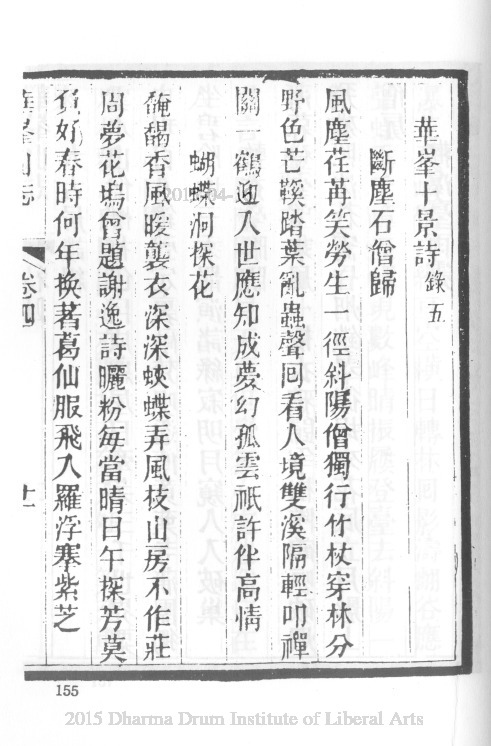 華峯十景詩 錄五
斷塵石僧歸
風塵荏苒笑勞生一徑斜陽僧獨行竹杖穿林分
野色芒鞵踏葉亂蟲聲回看人境雙溪隔輕叩禪
關一鶴迎入世應知成夢幻孤雲祇許伴高情
蝴蝶洞探花
馣馤香風暖襲衣深深蛺蝶弄風枝山房不作莊
周夢花塢曾題謝逸詩曬粉每當晴日午探芳莫
負好春時何年換著葛仙服飛入羅浮搴紫芝
華峯山志 卷四 十一
155
2015 Dharma Drum Institute of Liberal Arts